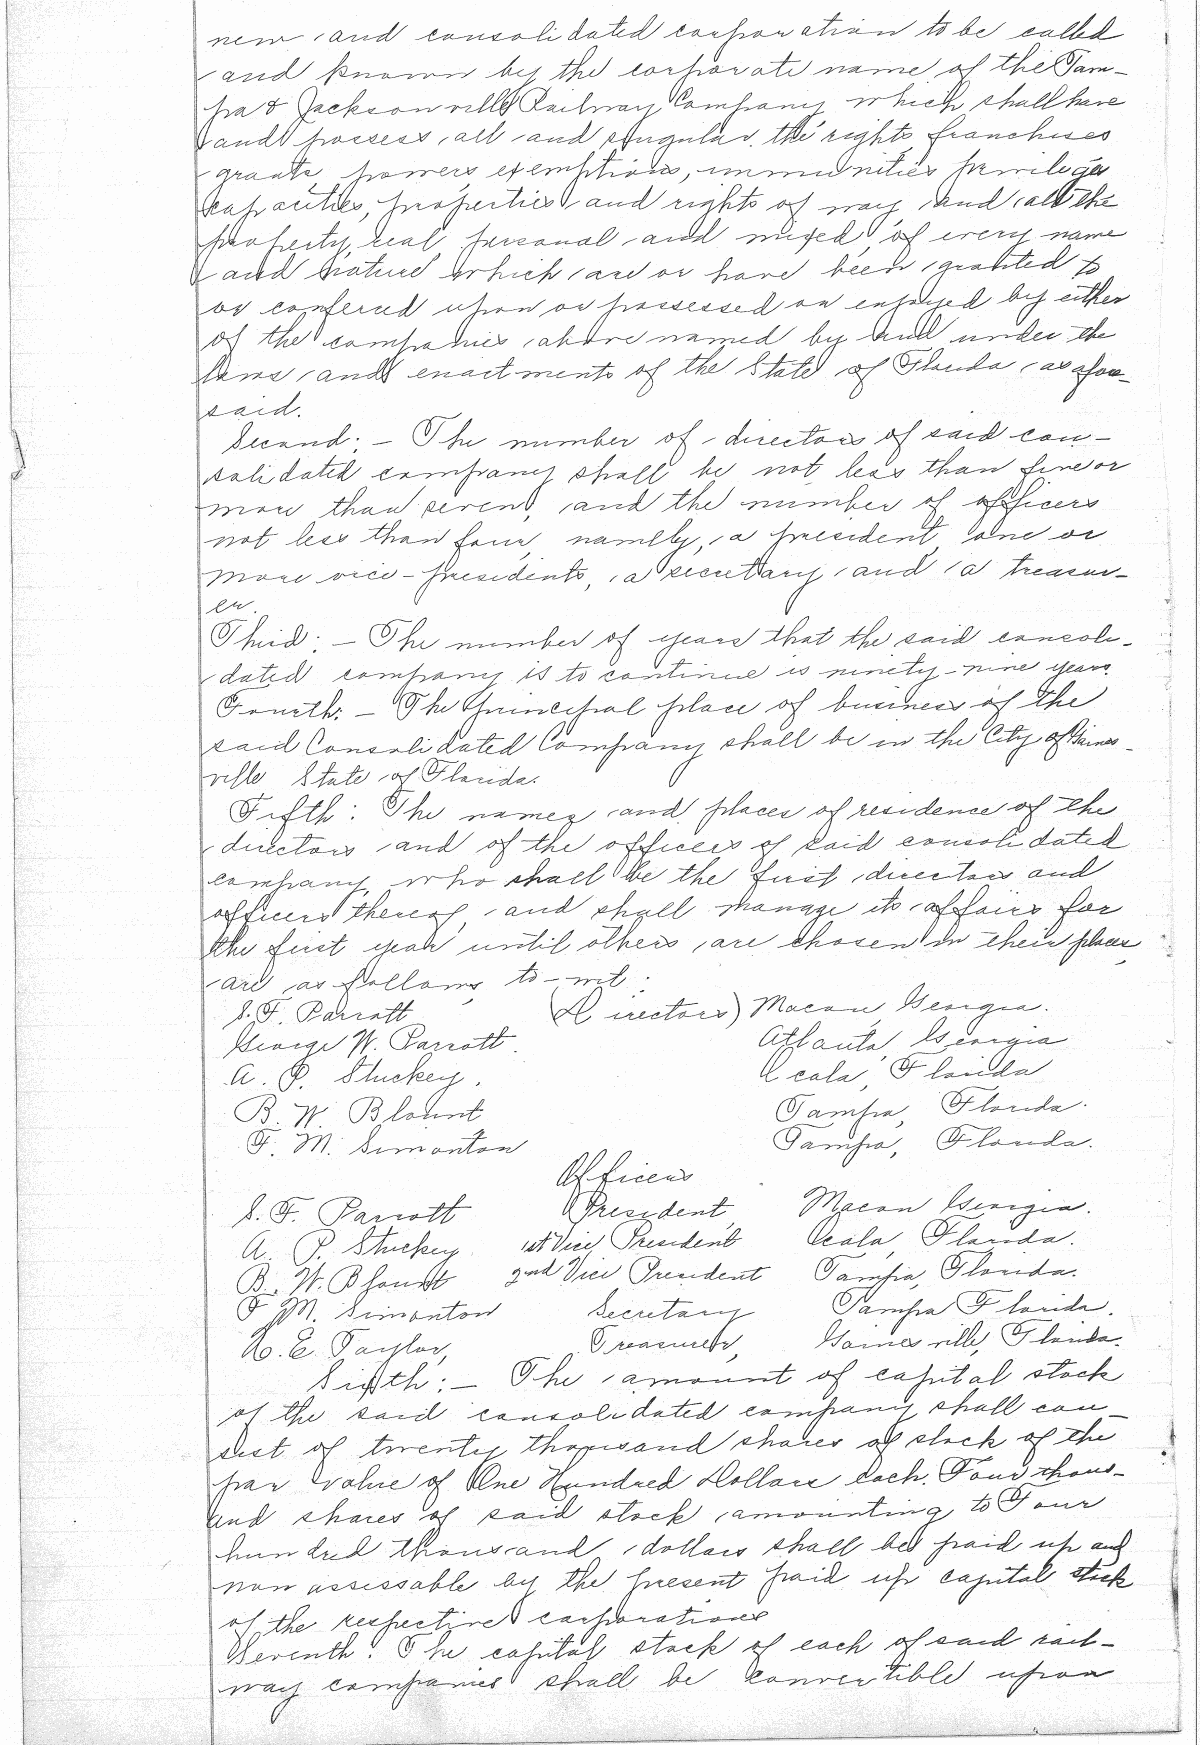 new and consolidated corporation to be called
and known by the corporate name of the Tam-
pa & Jacksonville Railway Company which shall have
and possess all and singular the rights franchises
grants, powers, exemptions, immunities privileges
capacities, properties and rights of way, and all the
property, real, personal and mixed, of every name
and nature which are or have been granted to
or confered upon or possessed or enjoyed by either
of the companies above named by and under the
laws and enactments of the State of Florida, as afore-
said.
Second:- The number of directors of said con-
solidated company shall be not less than five or
more than seven, and the number of officers
not less than four, namely, a president, one or
more vice-presidents, a secretary and a treasur-
er.
Third:- The number of years that the said consoli-
dated company is to continue is ninety-nine years.
Fourth:- The principal place of business of the
said Consolidated Company shall be in the City of Gaines-
ville State of Florida.
Fifth: The names and places of residence of the
directors and of the officers of said consolidated
company, who shall be the first directors and
officers thereof, and shall manage its affairs for
the first year until others are chosen in their places,
are as follows, to-wit:
S. F. Parrott (Directors) Macon, Georgia.
George W. Parrott Atlanta, Georgia
A. P. Stuckey. Ocala, Florida
B. W. Blount Tampa, Florida.
F. M. Simonton Tampa, Florida.
Officers
S. F. Parrott President, Macon Georgia.
A. P. Stuckey 1st Vice President Ocala, Florida.
B. W. Blount 2nd Vice President Tampa, Florida.
F M. Simonton Secretary Tampa Florida.
H. E. Taylor, Treasurer, Gainesville, Florida.
Sixth:- The amount of capital stock
of the said consolidated company shall con-
sist of twenty thousand shares of stock of the
par value of One Hundred Dollars each. Four thous-
and shares of said stock amounting to Four
hundred thousand dollars shall be paid up and
non assessable by the present paid up capital stock
of the respective corporations
Seventh: The capital stock of each of said rail-
way companies shall be convertible upon